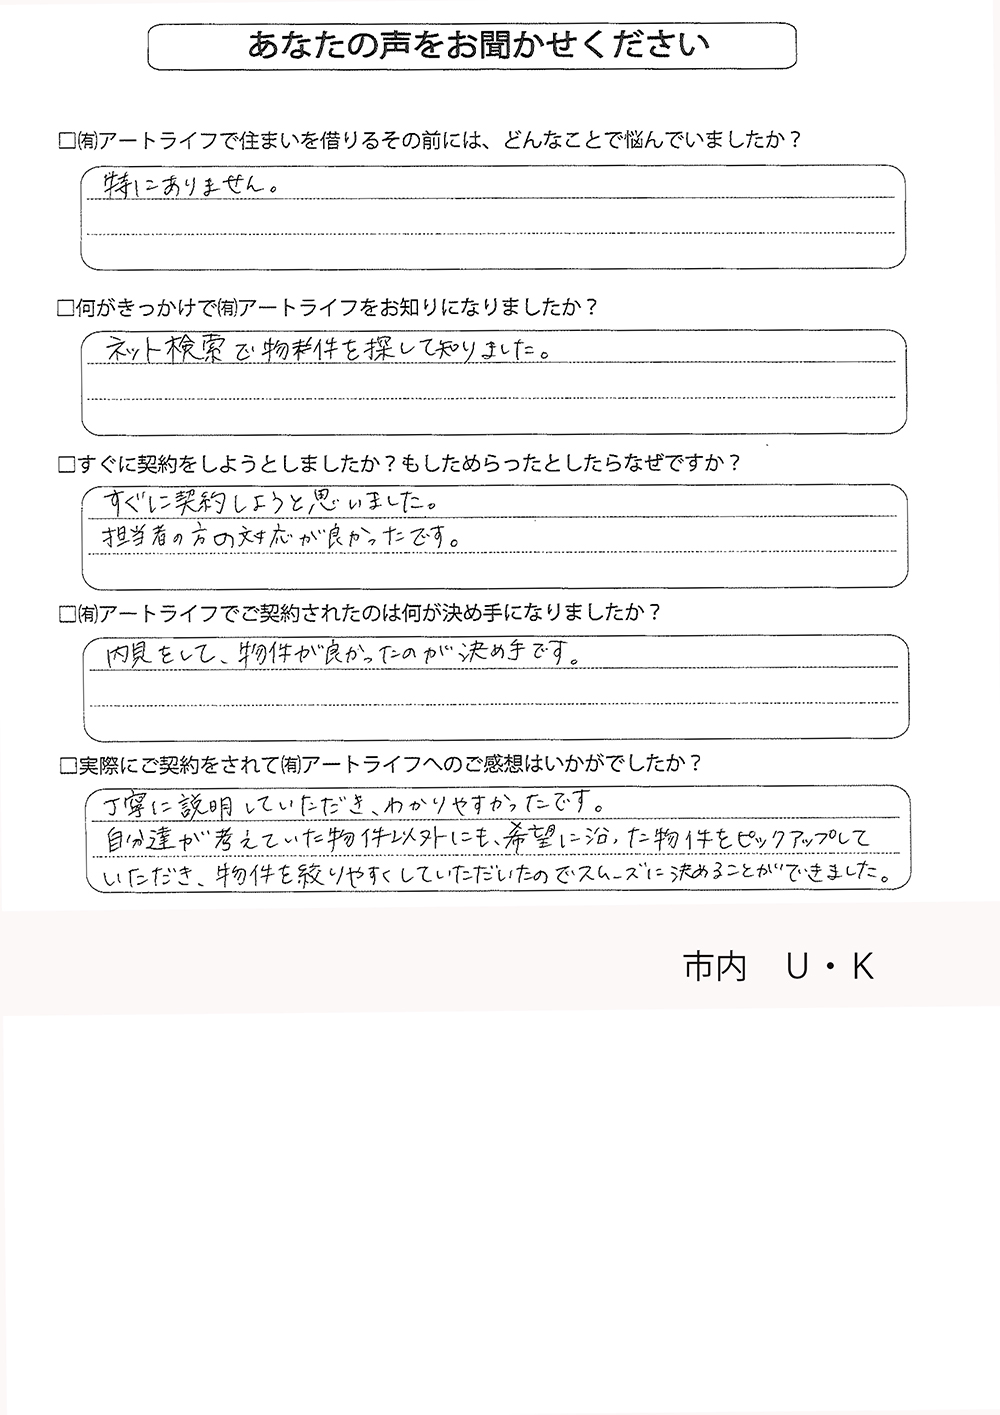 あなたの声をお聞かせください
□㈲アートライフで住まいを借りるその前には、どんなことで悩んでいましたか？
特にありません。
□何がきっかけで㈲アートライフをお知りになりましたか？
ネット検索で物件を探して知りました。
□すぐに契約をしようとしましたか？もしためらったとしたらなぜですか？
すぐに契約しようと思いました。
担当者の方の対応が良かったです。
□㈲アートライフでご契約されたのは何が決め手になりましたか？
内見をして、物件が良かったのが決め手です。
□実際にご契約をされて㈲アートライフへのご感想はいかがでしたか？
丁寧に説明していただき、わかりやすかったです。
自分達が考えていた物件以外にも、希望に沿った物件をピックアップして
いただき、物件を絞りやすくしていただいたのでスムーズに決めることができました。
市内　U・K